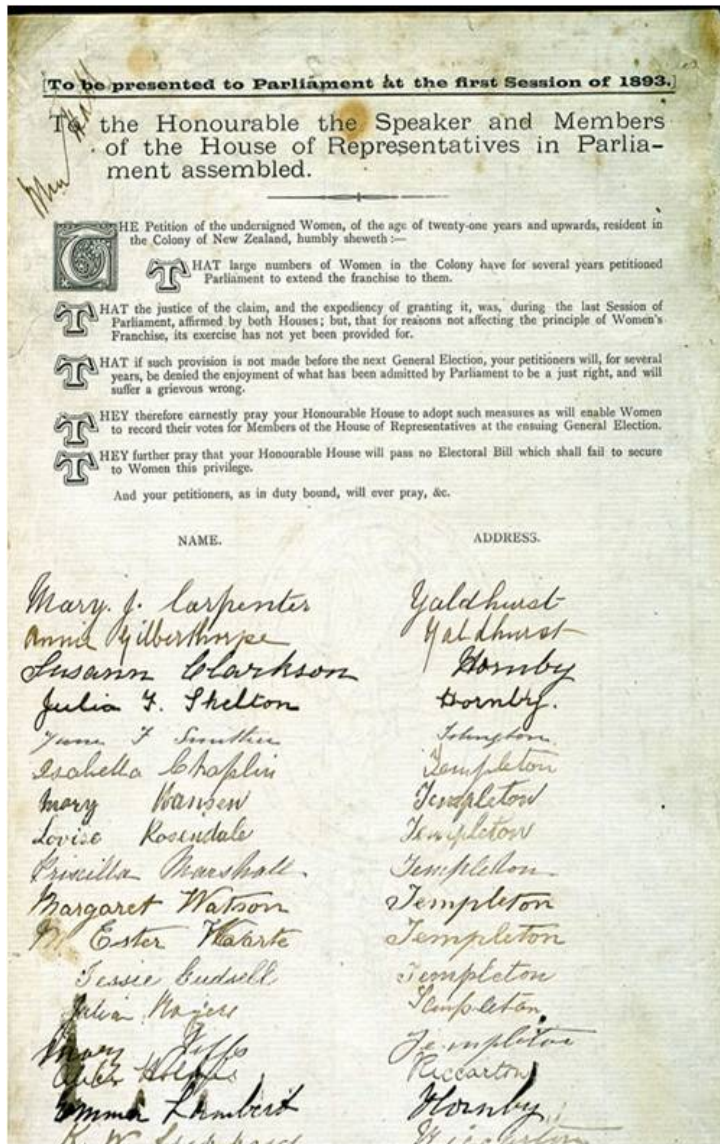 [To be presented to Parliament at the first Session of 1893.]
To the Honourable the Speaker and Members
of the House of Representatives in Parlia-
ment assembled.
THE Petition of the undersigned Women, of the age of twenty-one years and upwards, resident in
the Colony of New Zealand, humbly sheweth :—
THAT large numbers of Women in the Colony have for several years petitioned
Parliament to extend the franchise to them.
THAT the justice of the claim, and the expediency of granting it, was, during the last Session of
Parliament, affirmed by both Houses; but, that for reasons not affecting the principle of Women's
Franchise, its exercise has not yet been provided for.
THAT if such provision is not made before the next General Election, your petitioners will, for several
years, be denied the enjoyment of what has been admitted by Parliament to be a just right, and will
suffer a grievous wrong.
THEY therefore earnestly pray your Honourable House to adopt such measures as will enable Women
to record their votes for Members of the House of Representatives at the ensuing General Election.
THEY further pray that your Honourable House will pass no Electoral Bill which shall fail to secure
to Women this privilege.
And your petitioners, as in duty bound, will ever pray, &c.
NAME. ADDRESS.
Mary. J. Carpenter Yaldhurst
Annie Gilberthorpe Yaldhurst
Susann Clarkson Hornby
Julia F. Shelton Hornby.
Jane F
Isabella Chaplin Templeton
Mary Hansen Templeton
Louise Rosendale Templeton
Priscilla Marshall Templeton
Margaret Watson Templeton
M. Ester Templeton
Jessie Templeton
Julia Templeton
Mary Jiffs Templeton
Holmes Riccarton
Emma Lambert Hornby